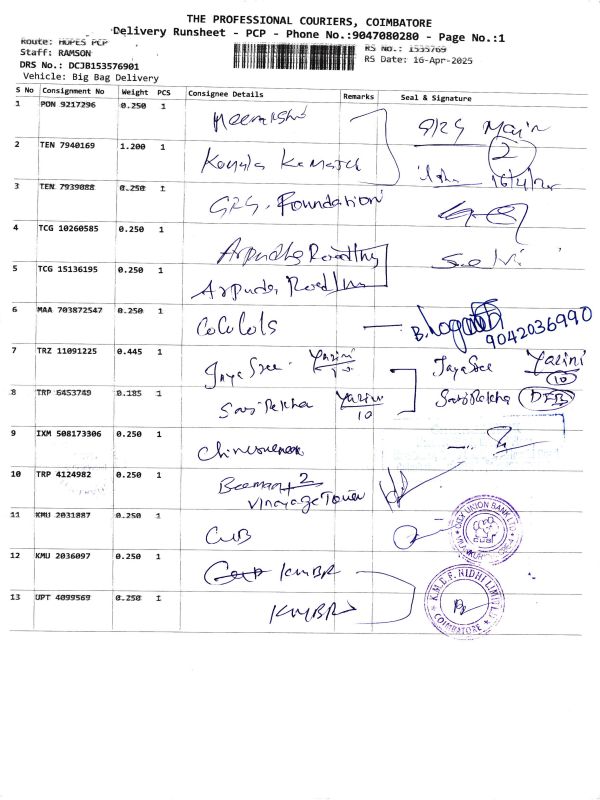 THE PROFESSIONAL COURIERS, COIMBATORE
Delivery Runsheet - PCP - Phone No.:9047080280 - Page No.:1
Route: HOPES PCP
RS No.: 1535769
Staff: RAMSON
RS Date: 16-Apr-2025
DRS No.: DCJB153576901
Vehicle: Big Bag Delivery
S No Consignment No Weight PCS Consignee Details Remarks Seal & Signature
1 PON 9217296 0.250 1 GRG Main
2 TEN 7940169 1.200 1 2
16/4/25
3 TEN 7939088 0.250 1 GRG. Foundation
4 TCG 10260585 0.250 1 Selvi
5 TCG 15136195 0.250 1
6 MAA 703872547 0.250 1 B. 9042036990
7 TRZ 11091225 0.445 1 JayaSree Yazini JayaSree Yazini
10
8 TRP 6453749 0.185 1 SasiRekha Yazini 10 SasiRekha
9 IXM 508173306 0.250 1
10 TRP 4124982 0.250 1
Vinayaga Tower
11 KMU 2031887 0.250 1 CUB
CITY UNION BANK LTD.
12 KMU 2036097 0.250 1 KMBR
K.M.B.F. NIDHI LIMITED
COIMBATORE
13 UPT 4099569 0.250 1 KMBR